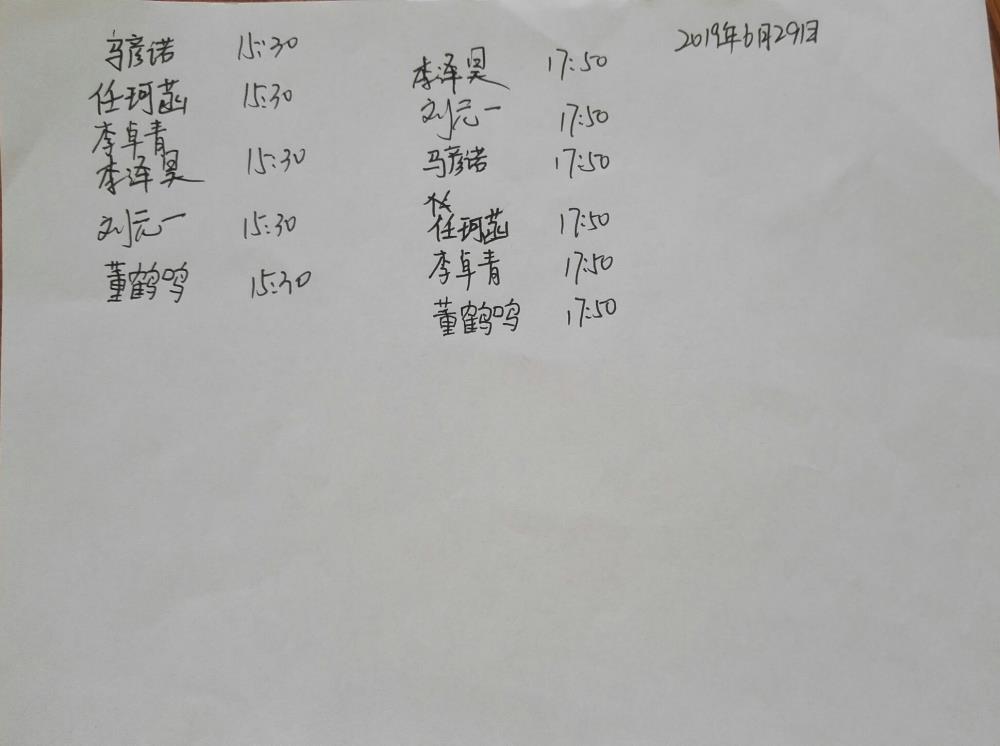 2019年6月29日
马彦诺 15:30
任珂菡 15:30
李卓青
李泽昊 15:30
刘元一 15:30
董鹤鸣 15:30
李泽昊 17:50
刘元一 17:50
马彦诺 17:50
任珂菡 17:50
李卓青 17:50
董鹤鸣 17:50